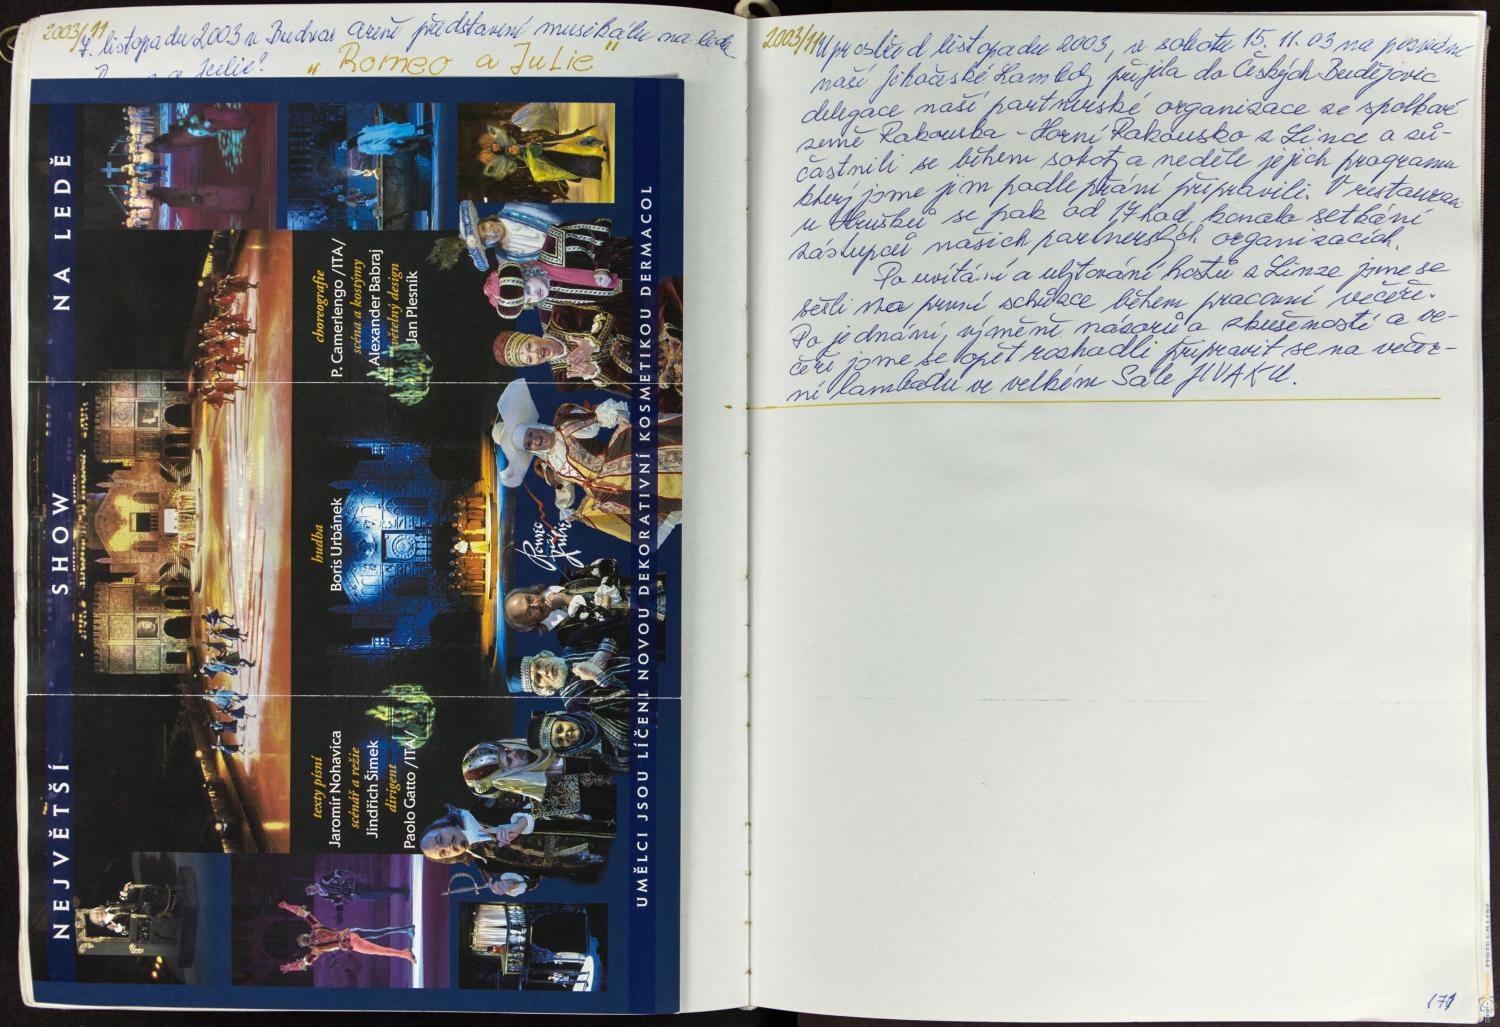 2003/11
7. listopadu 2003 v Budvar areně představení musikálu na ledě
Romeo a Julie! "Romeo a Julie"
NEJVĚTŠÍ SHOW NA LEDĚ
texty písní
Jaromír Nohavica
scénář a režie
Jindřich Šimek
dirigent
Paolo Gatto /ITA/
hudba
Boris Urbánek
choreografie
P. Camerlengo /ITA/
scéna a kostýmy
Alexander Babraj
světelný design
Jan Plesník
Romeo
Julie
UMĚLCI JSOU LÍČENI NOVOU DEKORATIVNÍ KOSMETIKOU DERMACOL
2003/11 Uprostřed listopadu 2003, v sobotu 15. 11. 03 na pozvání
naší Jihočeské Lambdy přijela do Českých Budějovic
delegace naší partnerské organizace ze spolkové
země Rakouska - Horní Rakousko z Lince a zú-
častnili se během soboty a neděle jejich programu
který jsme jim podle přání připravili. V restauraci
u se pak od 17 hod. konalo setkání
zástupců našich partnerských organizacích.
Po uvítání a ubytování hostů z Linze jsme se
sešli na první schůzce během pracovní večeře.
Po jednání, výměně názorů a zkušeností a ve-
čeři jsme se opět rozhodli připravit se na večer-
ní lambadu ve velkém Sále JIVAKU.
171